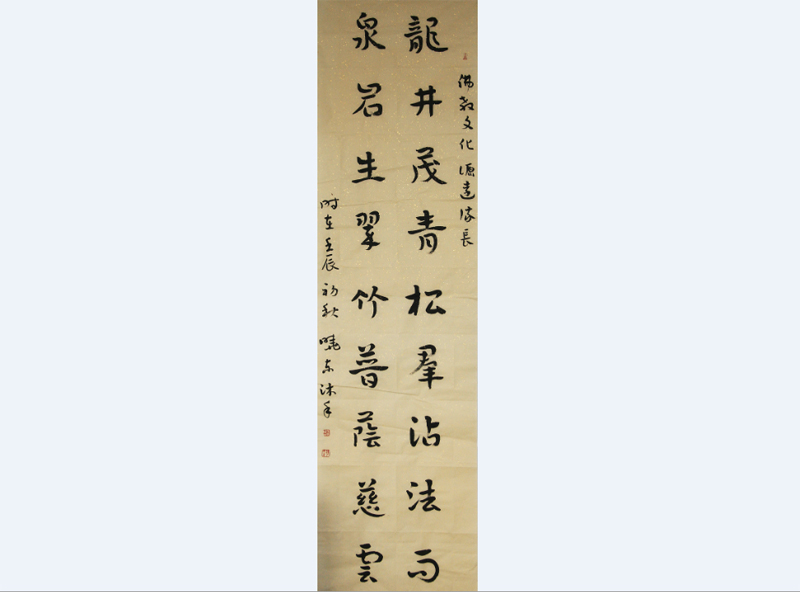 佛教文化源遠流長
龍井茂青松羣沾法雨
泉岩生翠竹普蔭慈雲
時在壬辰初秋曉东沐手